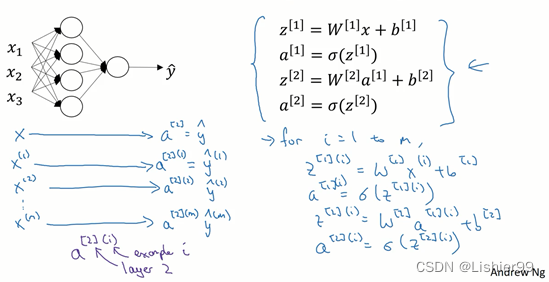 x₁
x₂
x₃
ŷ
z[1] = W[1]x + b[1]
a[1] = σ(z[1])
z[2] = W[2]a[1] + b[2]
a[2] = σ(z[2])
x → a[2] = ŷ
x(1) → a[2](1) = ŷ(1)
x(2) → a[2](2) ŷ(2)
⋮
x(m) → a[2](m) ŷ(m)
a[2](i) example i
layer 2
→ for i = 1 to m,
z[1](i) = W[1] x(i) + b[1]
a[1](i) = σ(z[1](i))
z[2](i) = W[2] a[1](i) + b[2]
a[2](i) = σ(z[2](i))
CSDN @Lishier99
Andrew Ng